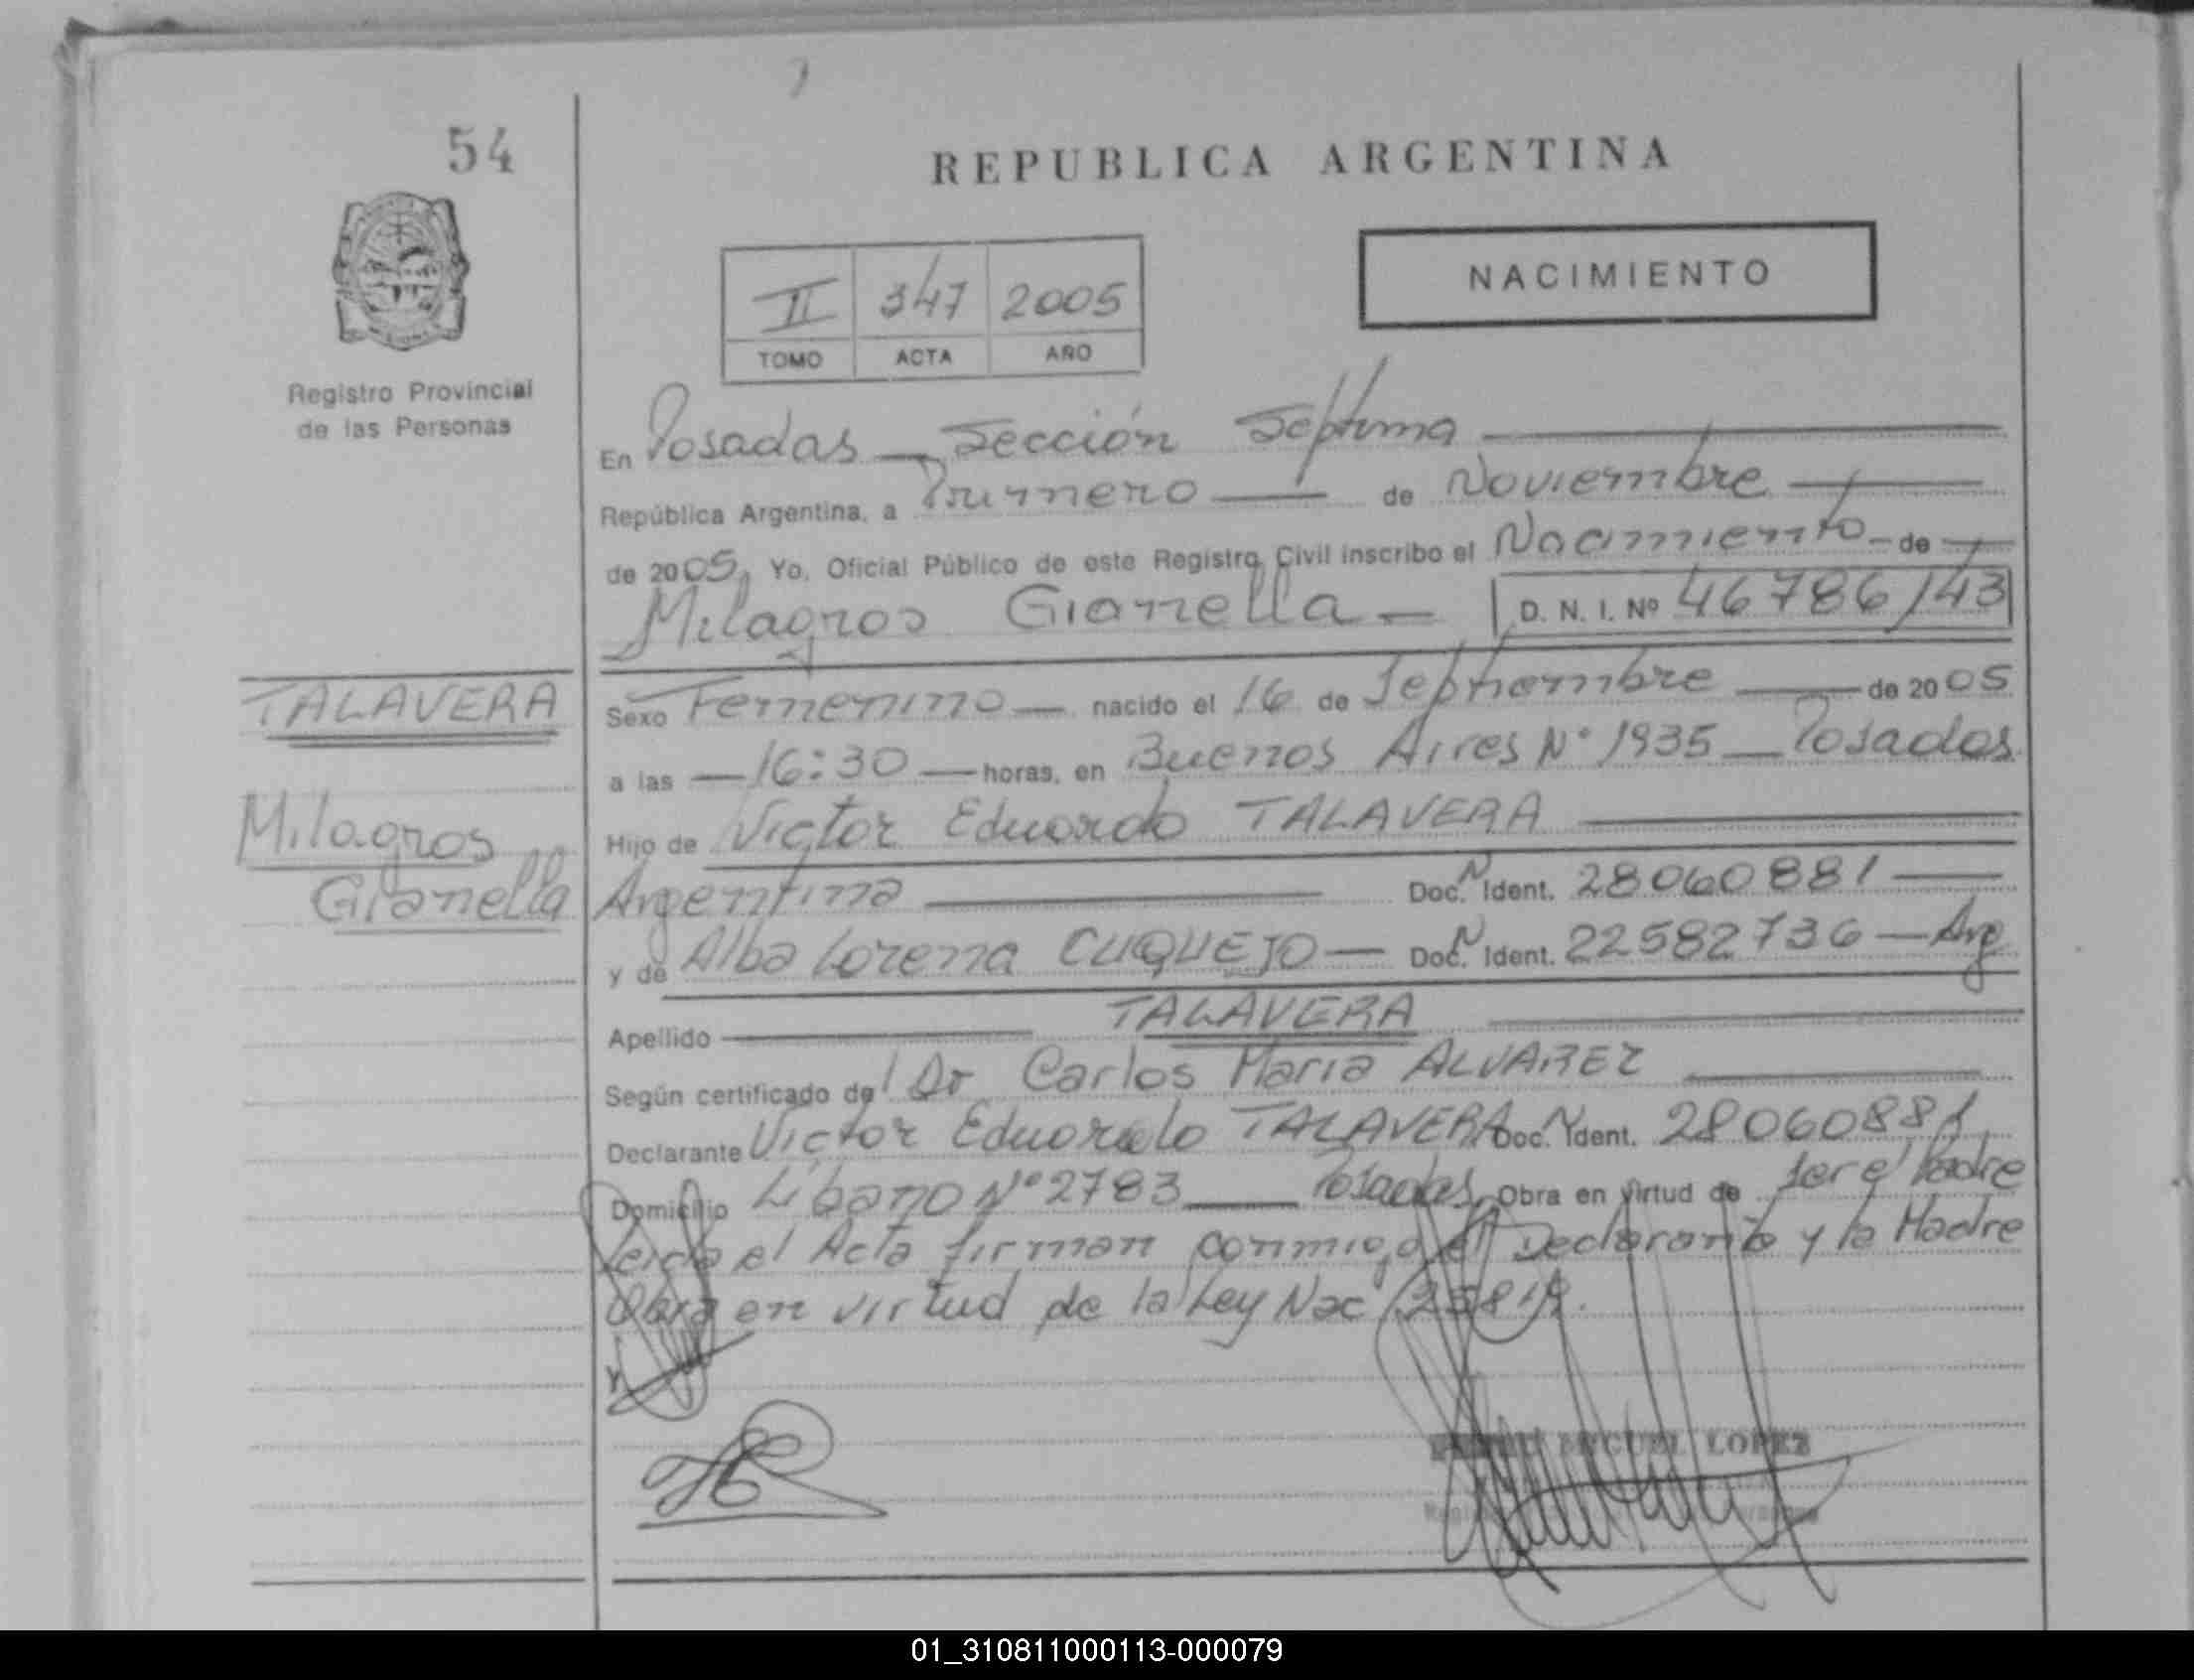 54
REPUBLICA ARGENTINA
NACIMIENTO
II 347 2005
TOMO ACTA AÑO
Registro Provincial
de las Personas
En Posadas — Sección Septima
República Argentina, a Primero — de Noviembre
de 2005, Yo, Oficial Público de este Registro Civil inscribo el Nacimiento de
Milagros Gianella — D. N. I. Nº 46786143
TALAVERA
Sexo Femenino — nacido el 16 de Septiembre — de 2005
a las — 16:30 — horas, en Buenos Aires Nº 1935 — Posadas
Milagros
Gianella
Hijo de Victor Eduardo TALAVERA
Argentina — Doc. N Ident. 28060881 —
y de Alba Lorena CUQUEJO — Doc. N Ident. 22582736 — Arg
Apellido — TALAVERA
Según certificado del Dr Carlos Maria ALVAREZ
Declarante Victor Eduardo TALAVERA Doc. N Ident. 28060881
Domicilio Libano Nº 2783 — Posadas Obra en virtud de ser el Padre
Leida el Acta firman conmigo el Declarante y la Madre
Obra en virtud de la Ley Nac 25819.
MIGUEL LOPEZ
01_310811000113-000079